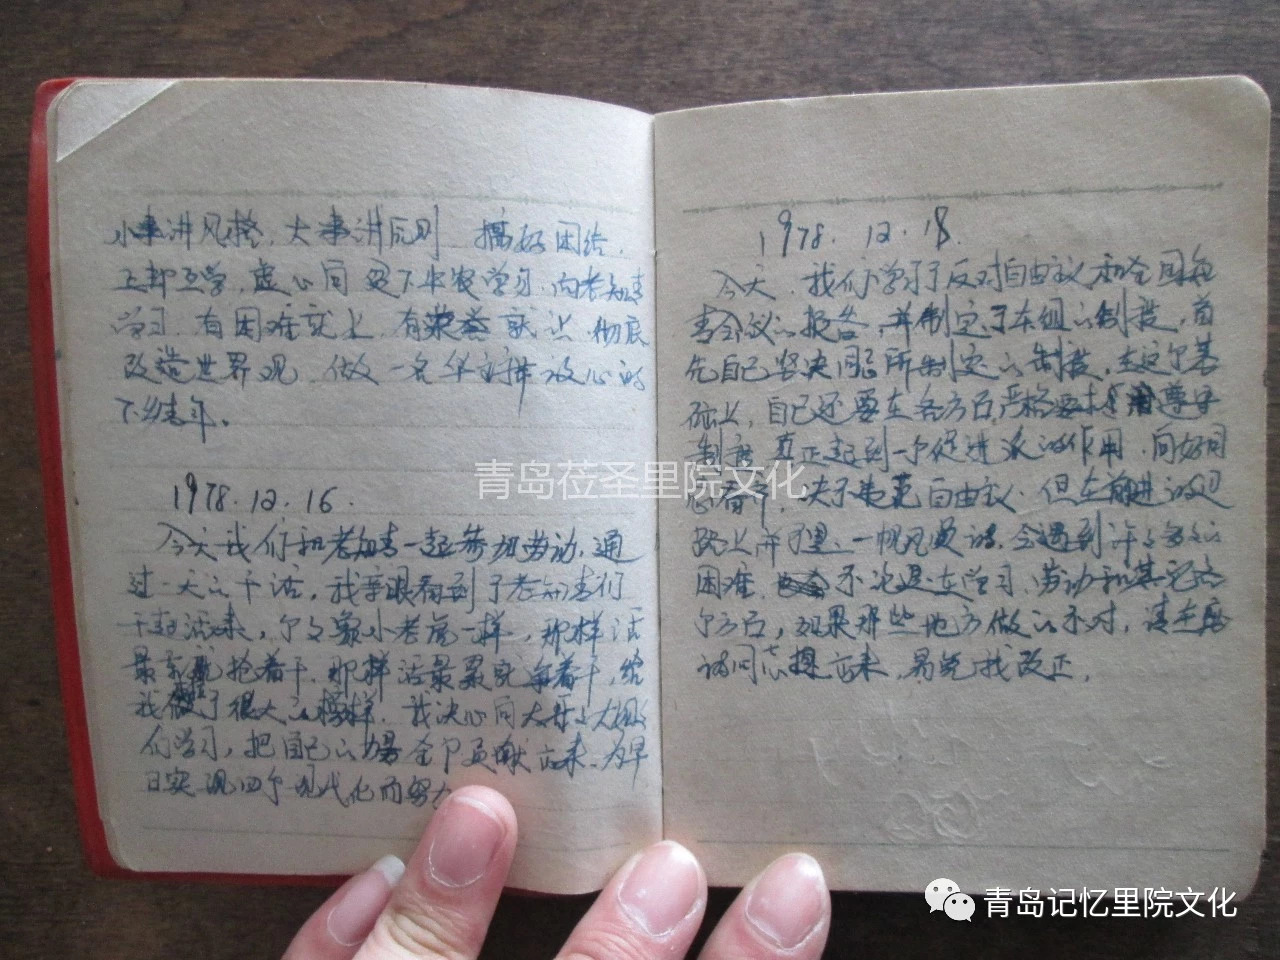 小事讲风格，大事讲原则 搞好团结，
上 互学，虚心向贫下中农学习，向老知青
学习，有困难就上，有荣益就让，彻底
改造世界观，做一名华主席放心的
下乡青年。
1978.12.16.
今天我们和老知青一起参加劳动，通
过一天的干活，我亲眼看到了老知青们
干起活来，个个象小老虎一样，那样活
最 抢着干，那样活最累就争着干，给
我做了很大的榜样，我决心向大哥大姐
们学习，把自己的 全部贡献出来，为早
日实现四个现代化而努力
1978.12.18.
今天，我们学习了反对自由主义和全国知
青会议的报告，并制定了本组的制度，首
先自己坚决同意所制定的制度，在这个基
础上，自己还要在各方面严格要求 遵守
制度，真正起到一个促进派的作用，向好同
志看齐，决不违范自由主义，但在前进的道
路上并不是一帆风顺的，会遇到许多多的
困难， 不论是在学习，劳动和其它的
个方面，如果那些地方做的不对，请在座
诸同志提出来，易于我改正，
青岛莅圣里院文化
青岛记忆里院文化